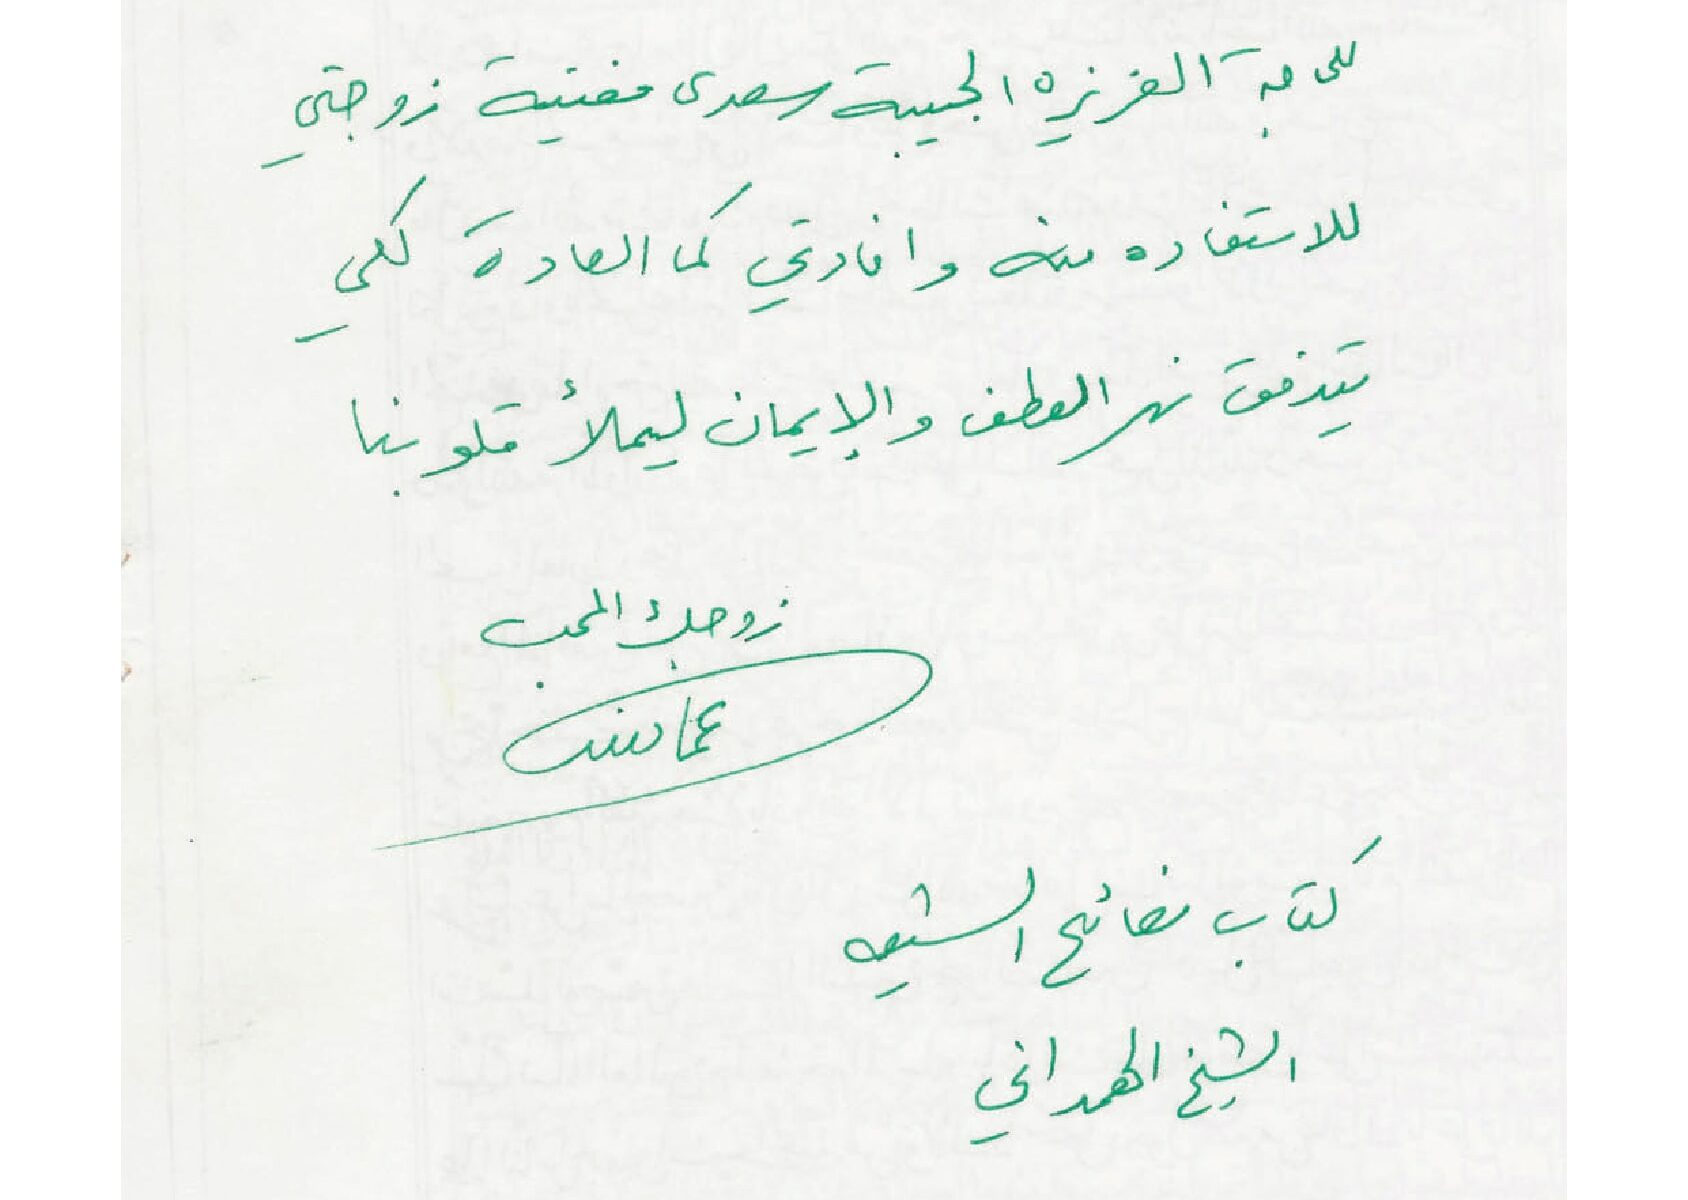 العزيزه الحبيبة سعدى مفتية زوجتي
للاستفاده منه وافادتي كما العادة لكي
يتدفق نهر العطف والإيمان ليملأ قلوبنا
زوجك المحب
كتاب فضائح الشيعه
الشيخ الهمداني